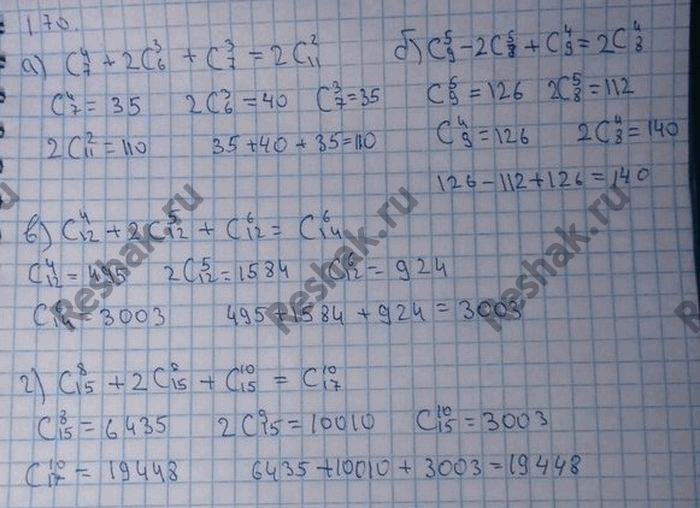 170.
а) C₇⁴ + 2C₆³ + C₇³ = 2C₁₁²
C₇⁴ = 35 2C₆³ = 40 C₇³ = 35
2C₁₁² = 110 35 + 40 + 35 = 110
б) C₉⁵ - 2C₈⁵ + C₉⁴ = 2C₈⁴
C₉⁵ = 126 2C₈⁵ = 112
C₉⁴ = 126 2C₈⁴ = 140
126 - 112 + 126 = 140
в) C₁₂⁴ + 2C₁₂⁵ + C₁₂⁶ = C₁₄⁶
C₁₂⁴ = 495 2C₁₂⁵ = 1584 C₁₂⁶ = 924
C₁₄⁶ = 3003 495 + 1584 + 924 = 3003
г) C₁₅⁸ + 2C₁₅⁹ + C₁₅¹⁰ = C₁₇¹⁰
C₁₅⁸ = 6435 2C₁₅⁹ = 10010 C₁₅¹⁰ = 3003
C₁₇¹⁰ = 19448 6435 + 10010 + 3003 = 19448
Reshak.ru
Reshak.ru
Reshak.ru